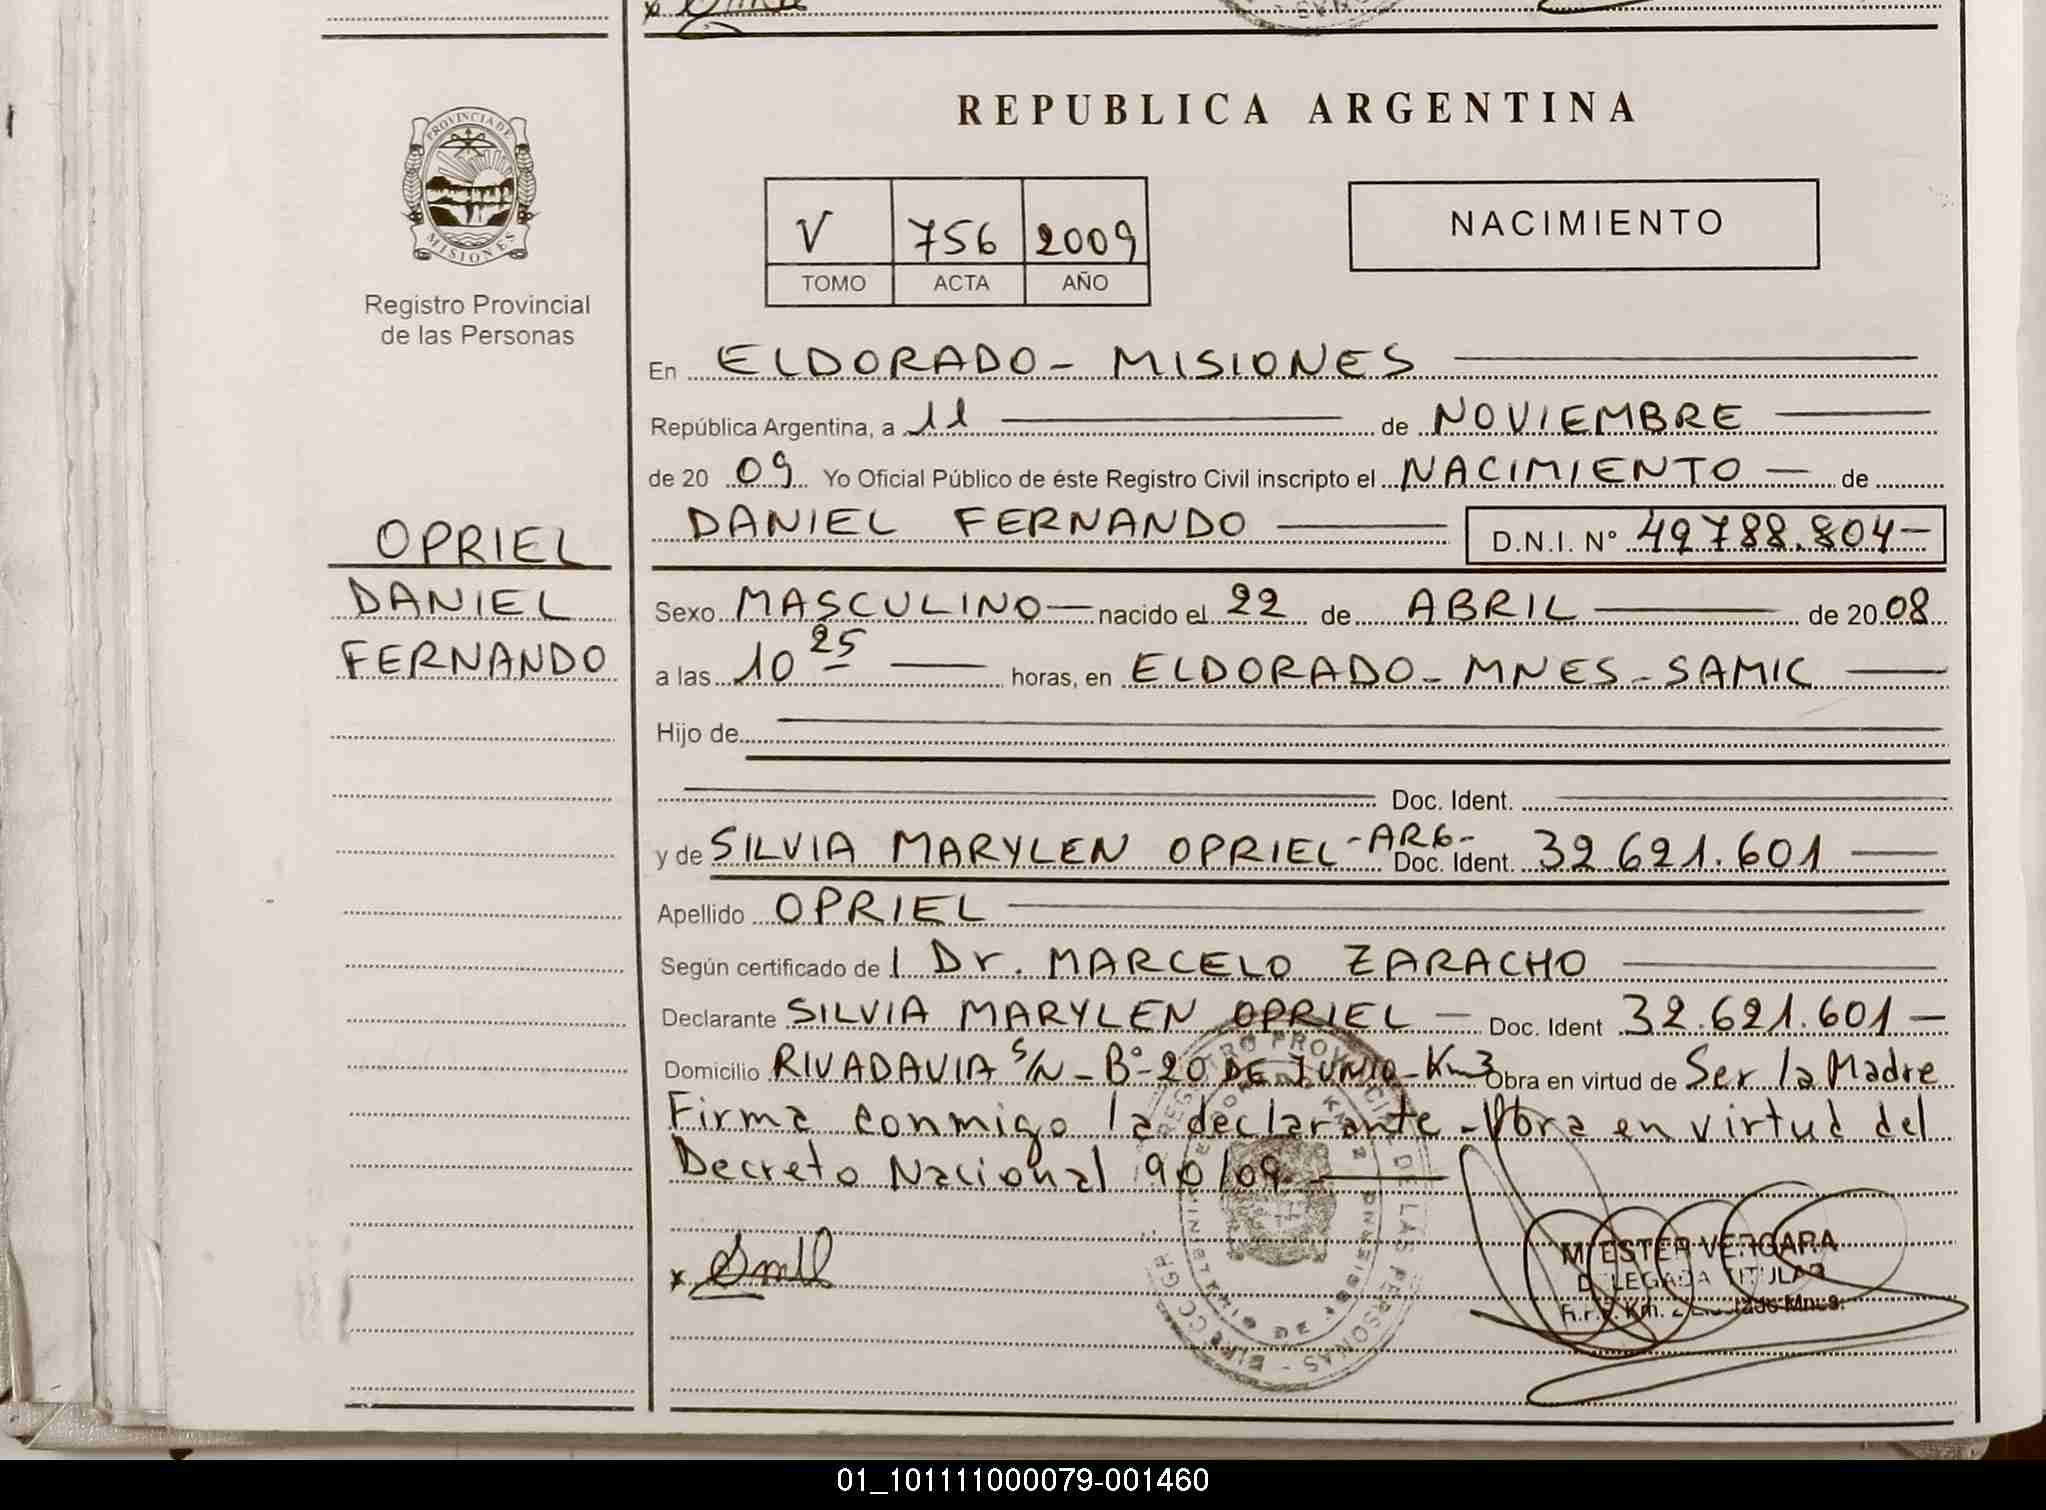 REPUBLICA ARGENTINA
PROVINCIA DE
MISIONES
Registro Provincial
de las Personas
V 756 2009
TOMO ACTA AÑO
NACIMIENTO
En ELDORADO - MISIONES
República Argentina, a 11 de NOVIEMBRE
de 20 09 Yo Oficial Público de éste Registro Civil inscripto el NACIMIENTO de
DANIEL FERNANDO D.N.I. Nº 49788.804-
OPRIEL
DANIEL
FERNANDO
Sexo MASCULINO nacido el 22 de ABRIL de 20 08
a las 10 25 horas, en ELDORADO - MNES - SAMIC
Hijo de
Doc. Ident.
y de SILVIA MARYLEN OPRIEL - ARG - Doc. Ident. 32.621.601
Apellido OPRIEL
Según certificado de l Dr. MARCELO ZARACHO
Declarante SILVIA MARYLEN OPRIEL - Doc. Ident 32.621.601 -
Domicilio RIVADAVIA S/N - Bº 20 DE JUNIO - Km 3 Obra en virtud de Ser la Madre
Firma conmigo la declarante - Obra en virtud del
Decreto Nacional 90/09
REGISTRO PROVINCIAL DE LAS PERSONAS
x
ESTER VERGARA
DELEGADA TITULAR
01_101111000079-001460